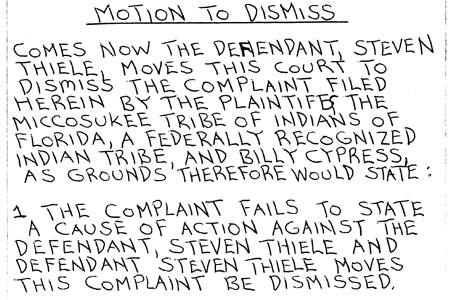 MOTION TO DISMISS
COMES NOW THE DEFENDANT, STEVEN
THIELE, MOVES THIS COURT TO
DISMISS THE COMPLAINT FILED
HEREIN BY THE PLAINTIFFS THE
MICCOSUKEE TRIBE OF INDIANS OF
FLORIDA, A FEDERALLY RECOGNIZED
INDIAN TRIBE, AND BILLY CYPRESS,
AS GROUNDS THEREFORE WOULD STATE:
1 THE COMPLAINT FAILS TO STATE
A CAUSE OF ACTION AGAINST THE
DEFENDANT, STEVEN THIELE AND
DEFENDANT STEVEN THIELE MOVES
THIS COMPLAINT BE DISMISSED.